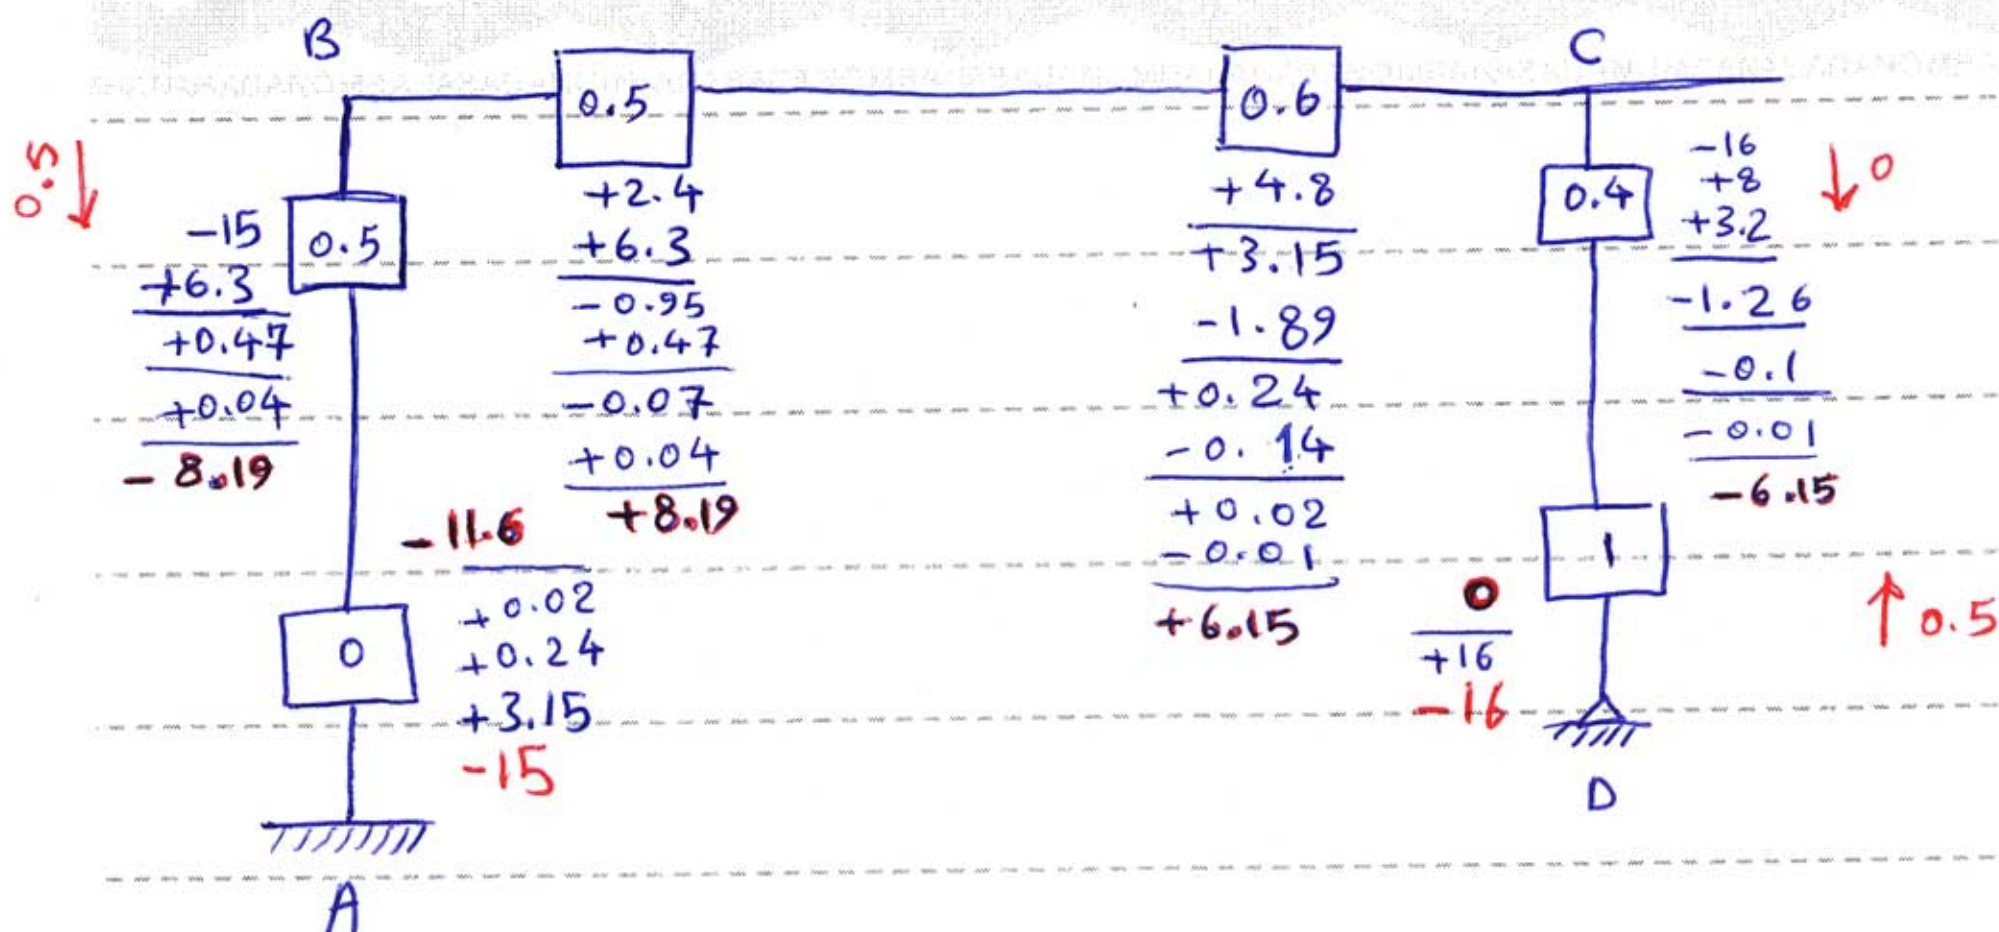 B
C
0.5
0.6
0.5 ↓
-15
+6.3
+0.47
+0.04
- 8.19
0.5
+2.4
+6.3
-0.95
+0.47
-0.07
+0.04
+8.19
+4.8
+3.15
-1.89
+0.24
-0.14
+0.02
-0.01
+6.15
0.4
-16
+8
+3.2
-1.26
-0.1
-0.01
-6.15
↓ 0
-11.6
+0.02
+0.24
+3.15
-15
0
0
+16
-16
1
↑ 0.5
A
D